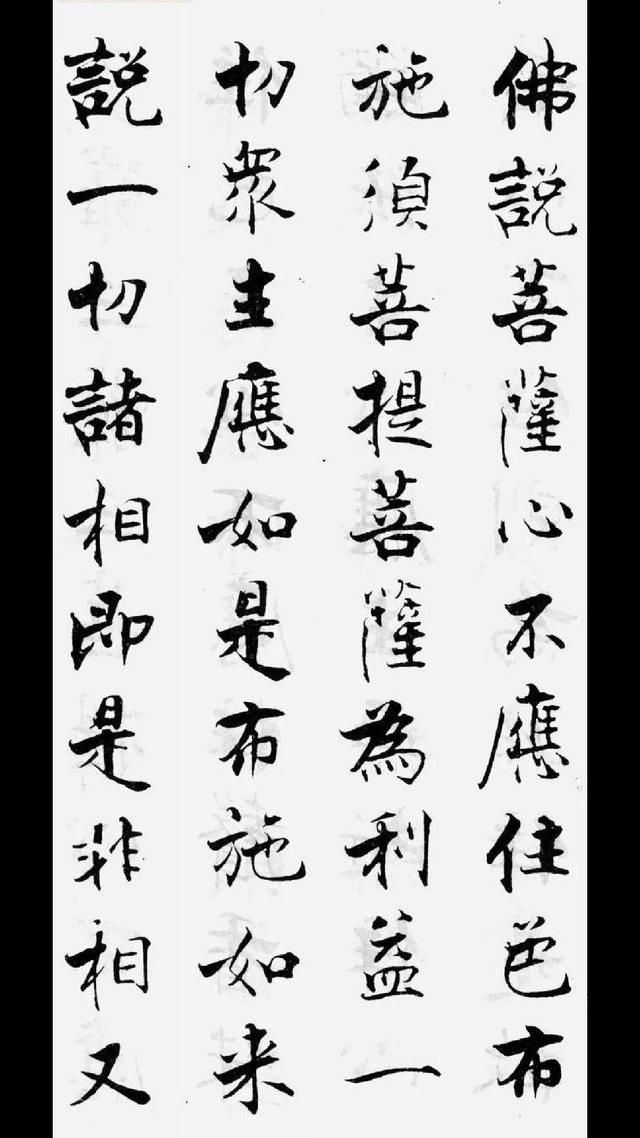 佛說菩薩心不應住色布
施須菩提菩薩為利益一
切眾生應如是布施如来
說一切諸相即是非相又